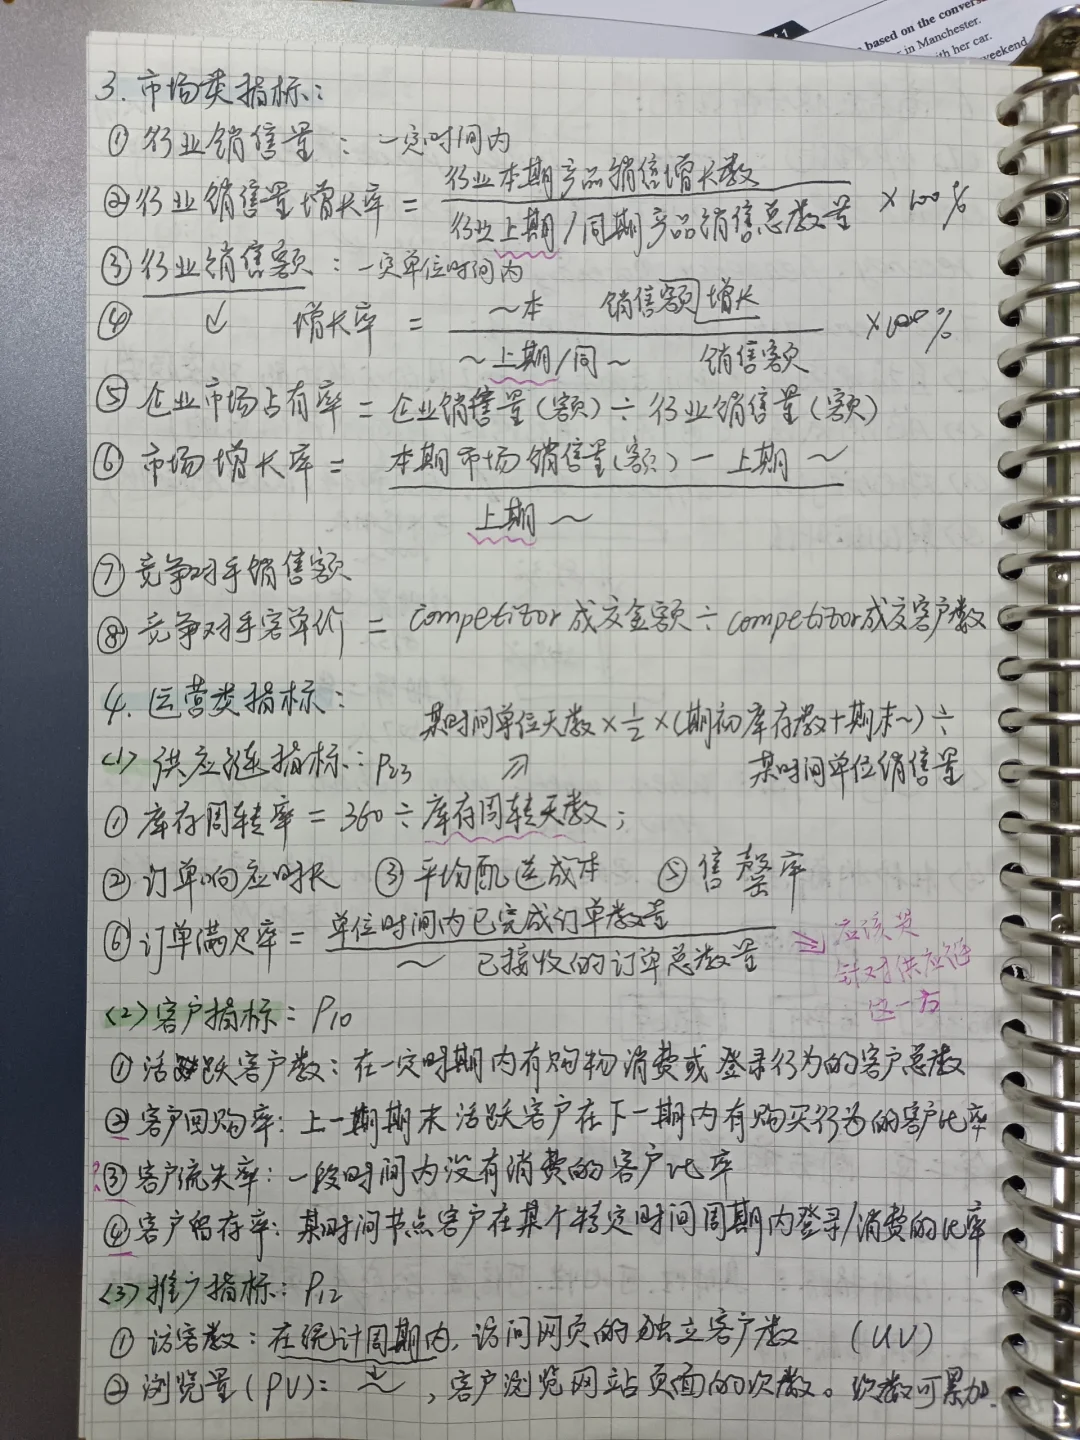 based on the convers
in Manchester.
th her car.
weekend
3. 市场类指标：
① 行业销售量：一定时间内
②行业销售量增长率 = 行业本期产品销售增长数 / 行业上期/同期产品销售总数量 ×100%
③ 行业销售额：一定单位时间内
④ ↓ 增长率 = ~本 销售额增长 / ~上期/同~ 销售额 ×100%
⑤ 企业市场占有率 = 企业销售量(额) ÷ 行业销售量(额)
⑥ 市场增长率 = 本期市场销售量(额) － 上期 ~ / 上期 ~
⑦ 竞争对手销售额
⑧ 竞争对手客单价 = competitor成交金额 ÷ competitor成交客户数
4. 运营类指标：
某时间单位天数 × 1/2 ×(期初库存数+期末~) ÷
某时间单位销售量
<1> 供应链指标：P23
① 库存周转率 = 360 ÷ 库存周转天数；
② 订单响应时长 ③ 平均配送成本 ⑤ 售罄率
⑥ 订单满足率 = 单位时间内已完成订单数量 / ~ 已接收的订单总数量
应该是
针对供应链
这一方
<2> 客户指标：P10
① 活跃客户数：在一定时期内有购物消费或登录行为的客户总数
② 客户回购率：上一期期末活跃客户在下一期内有购买行为的客户比率
? ③ 客户流失率：一段时间内没有消费的客户比率
④ 客户留存率：某时间节点客户在某个特定时间周期内登录/消费的比率
<3> 推广指标：P12
① 访客数：在统计周期内，访问网页的独立客户数 (UV)
② 浏览量(PV)：~，客户浏览网站页面的次数。次数可累加.